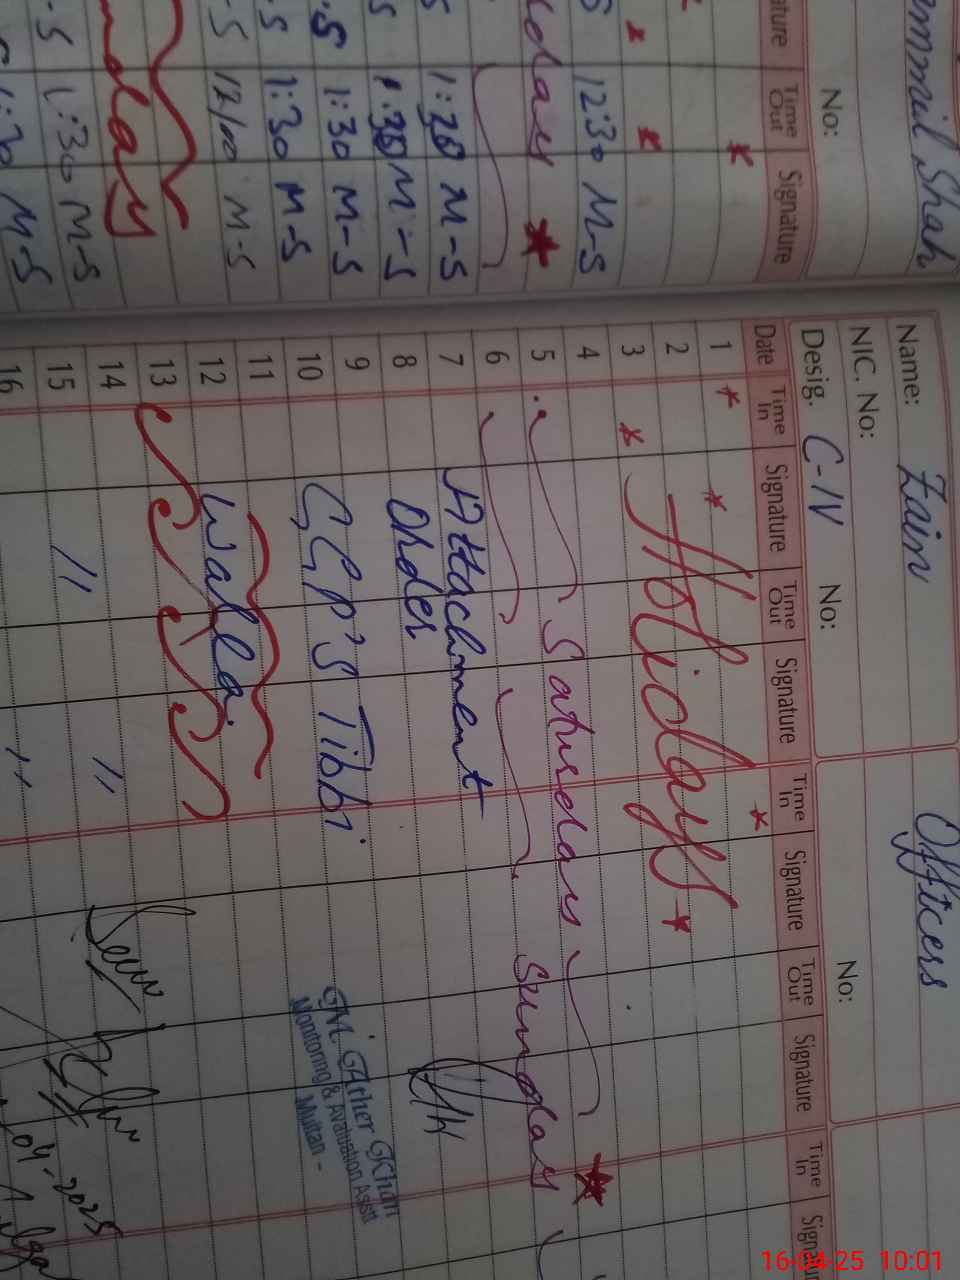 ammil Shah
No:
ature Time Out Signature
12:30 M-S
1:20 M-S
1:30 M-S
1:30 M-S
1:30 M-S
12/00 M-S
1:30 M-S
1:30 M-S
Name: Zain Officers
NIC. No:
Desig. C-IV No: No:
Date Time In Signature Time Out Signature Time In Signature Time Out Signature Time In Signatu
1
2 Holidays
3
4
5 Saturday
6 Sunday
7 Attachment
8 Order
9
10 GGP'S Tibbi
11
12 Walla
13
14 "
15 " "
16
Monitoring & Avaluation Asstt
Multan -
04-2025
16-04-25 10:01